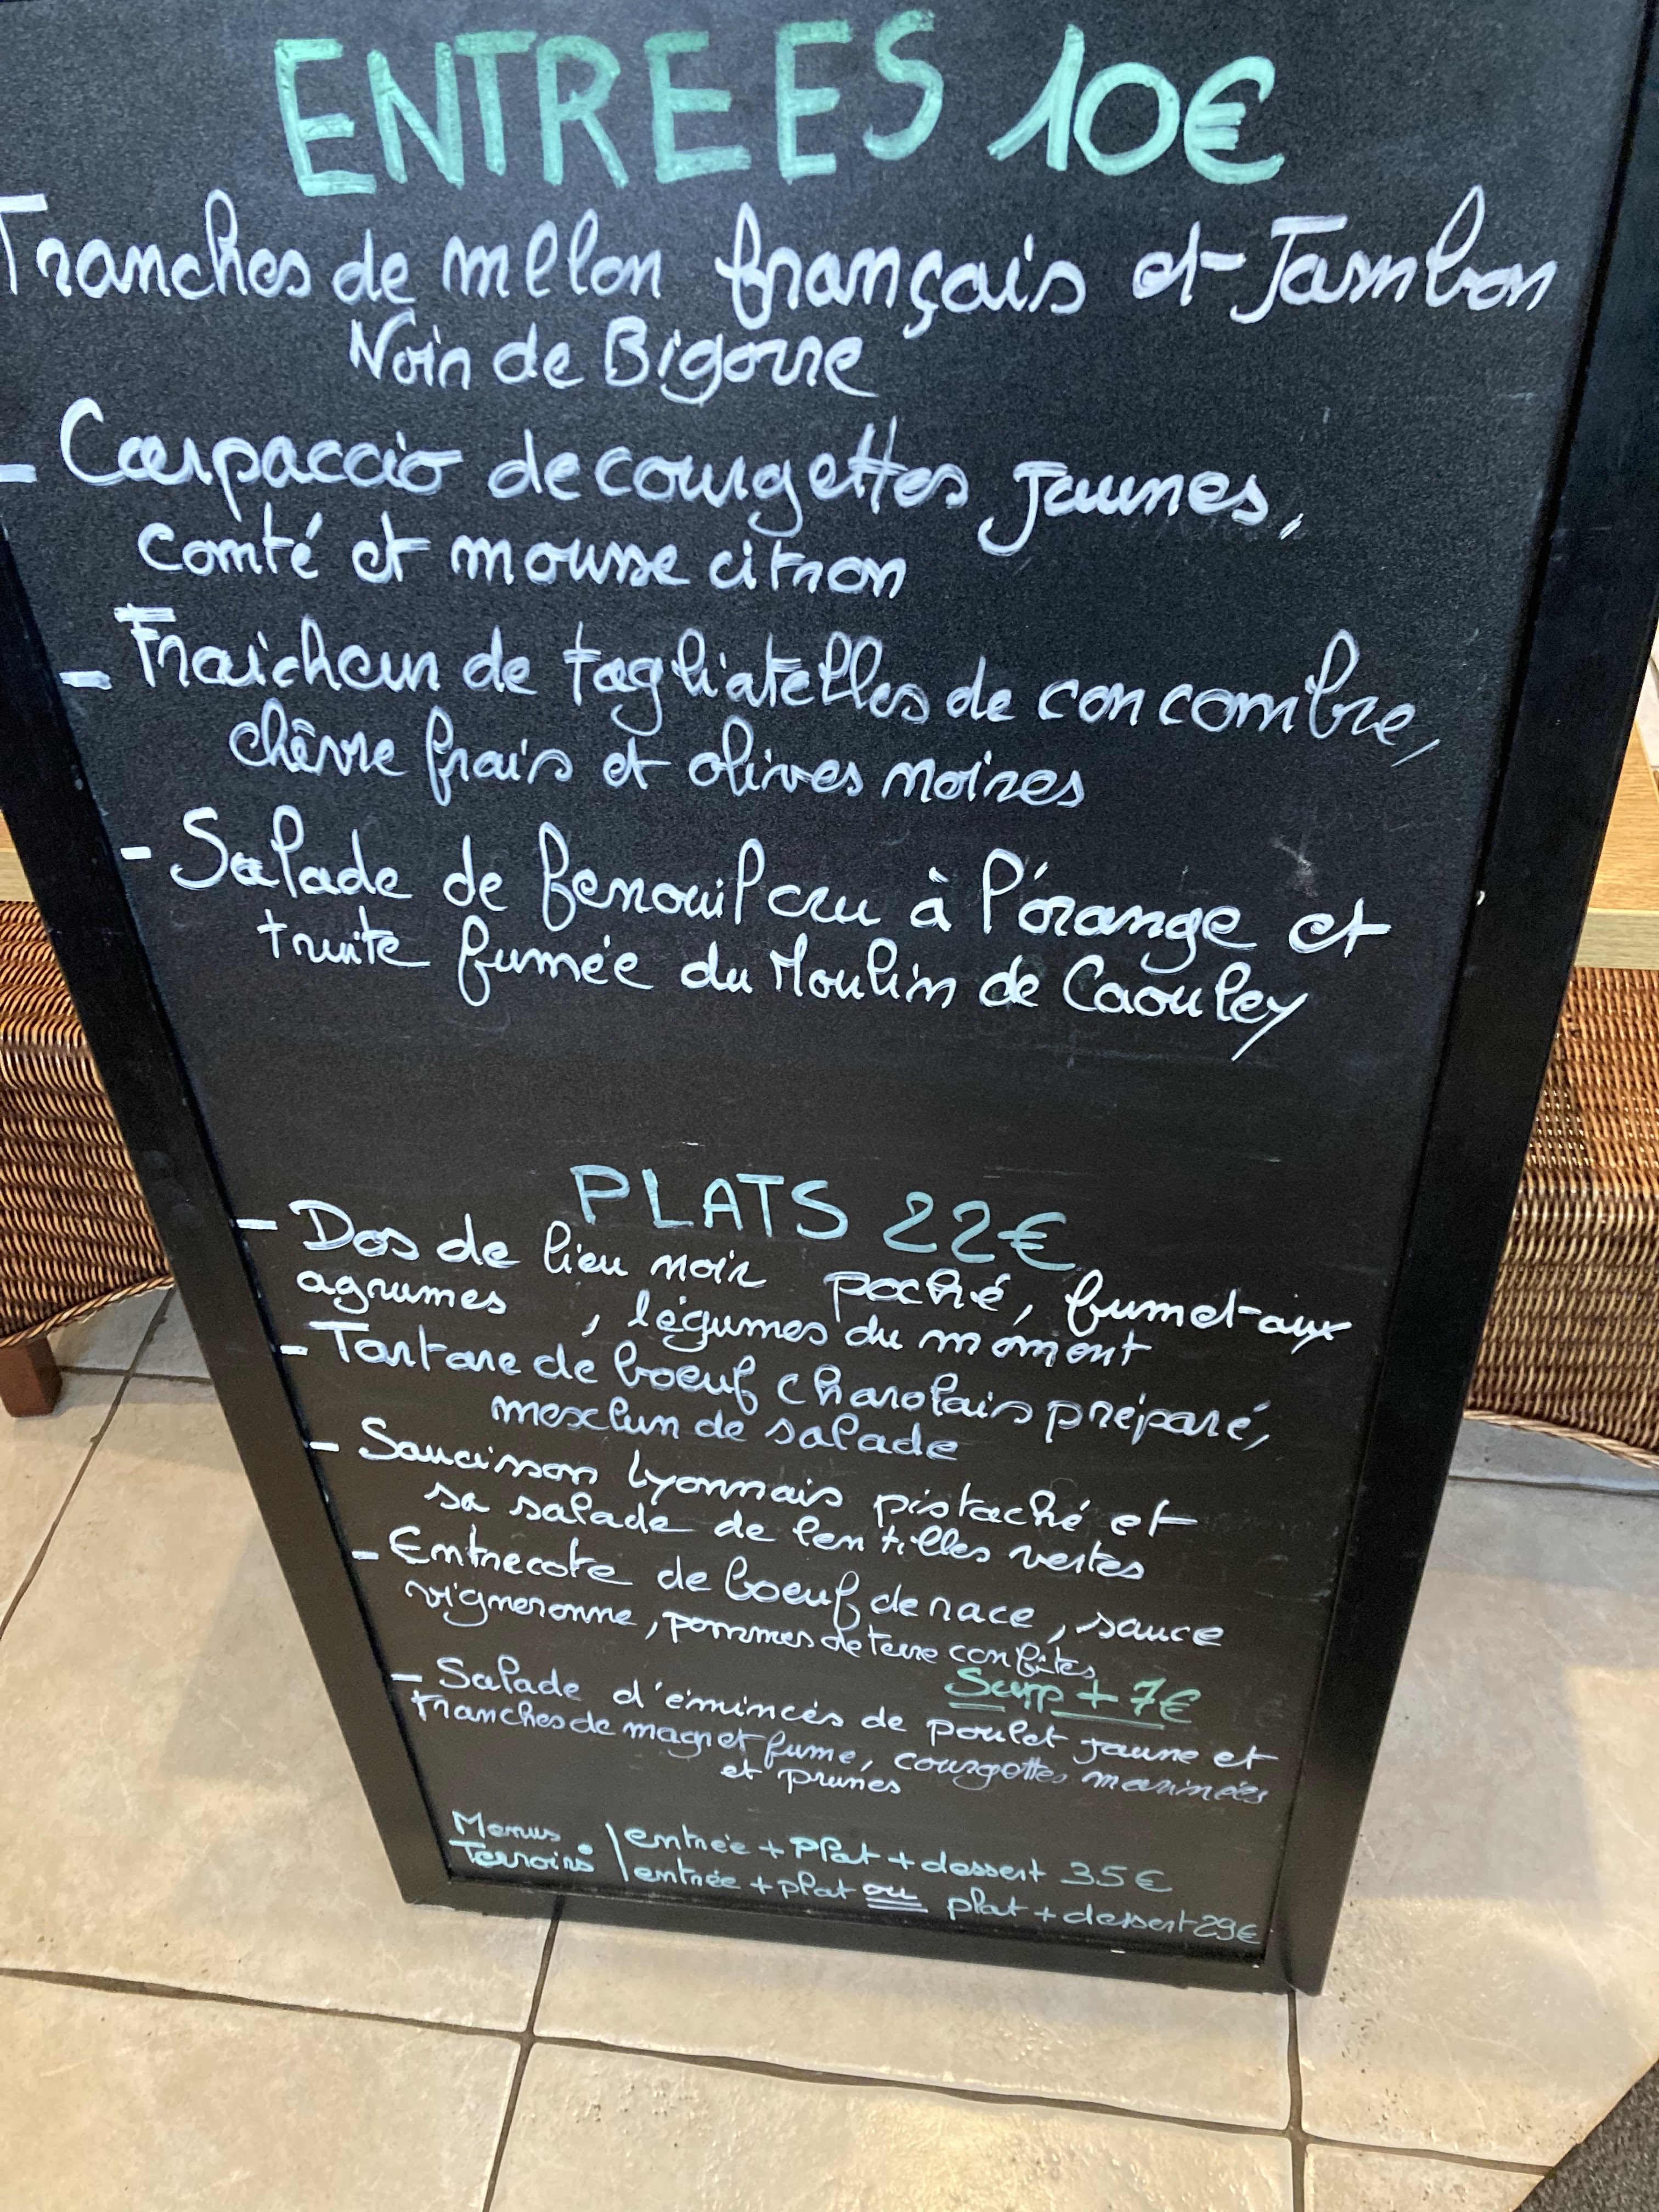 ENTREES 10€
Tranches de melon français et Jambon
Noir de Bigorre
- Carpaccio de courgettes jaunes,
comté et mousse citron
- Fraicheur de tagliatelles de concombre,
chêvre frais et olives noires
- Salade de fenouil cru à l'orange et
truite fumée du Moulin de Caouley
PLATS 22€
- Dos de lieu noir poché, fumet aux
agrumes , légumes du moment
- Tartare de boeuf charolais préparé,
mesclun de salade
- Saucisson Lyonnais pistaché et
sa salade de lentilles vertes
- Entrecote de boeuf de race, sauce
vigneronne, pommes de terre confites
Supp + 7€
- Salade d'émincés de poulet jaune et
tranches de magret fumé, courgettes marinées
et prunes
Menus | entrée + plat + dessert 35€
Terroirs | entrée + plat ou plat + dessert 29€